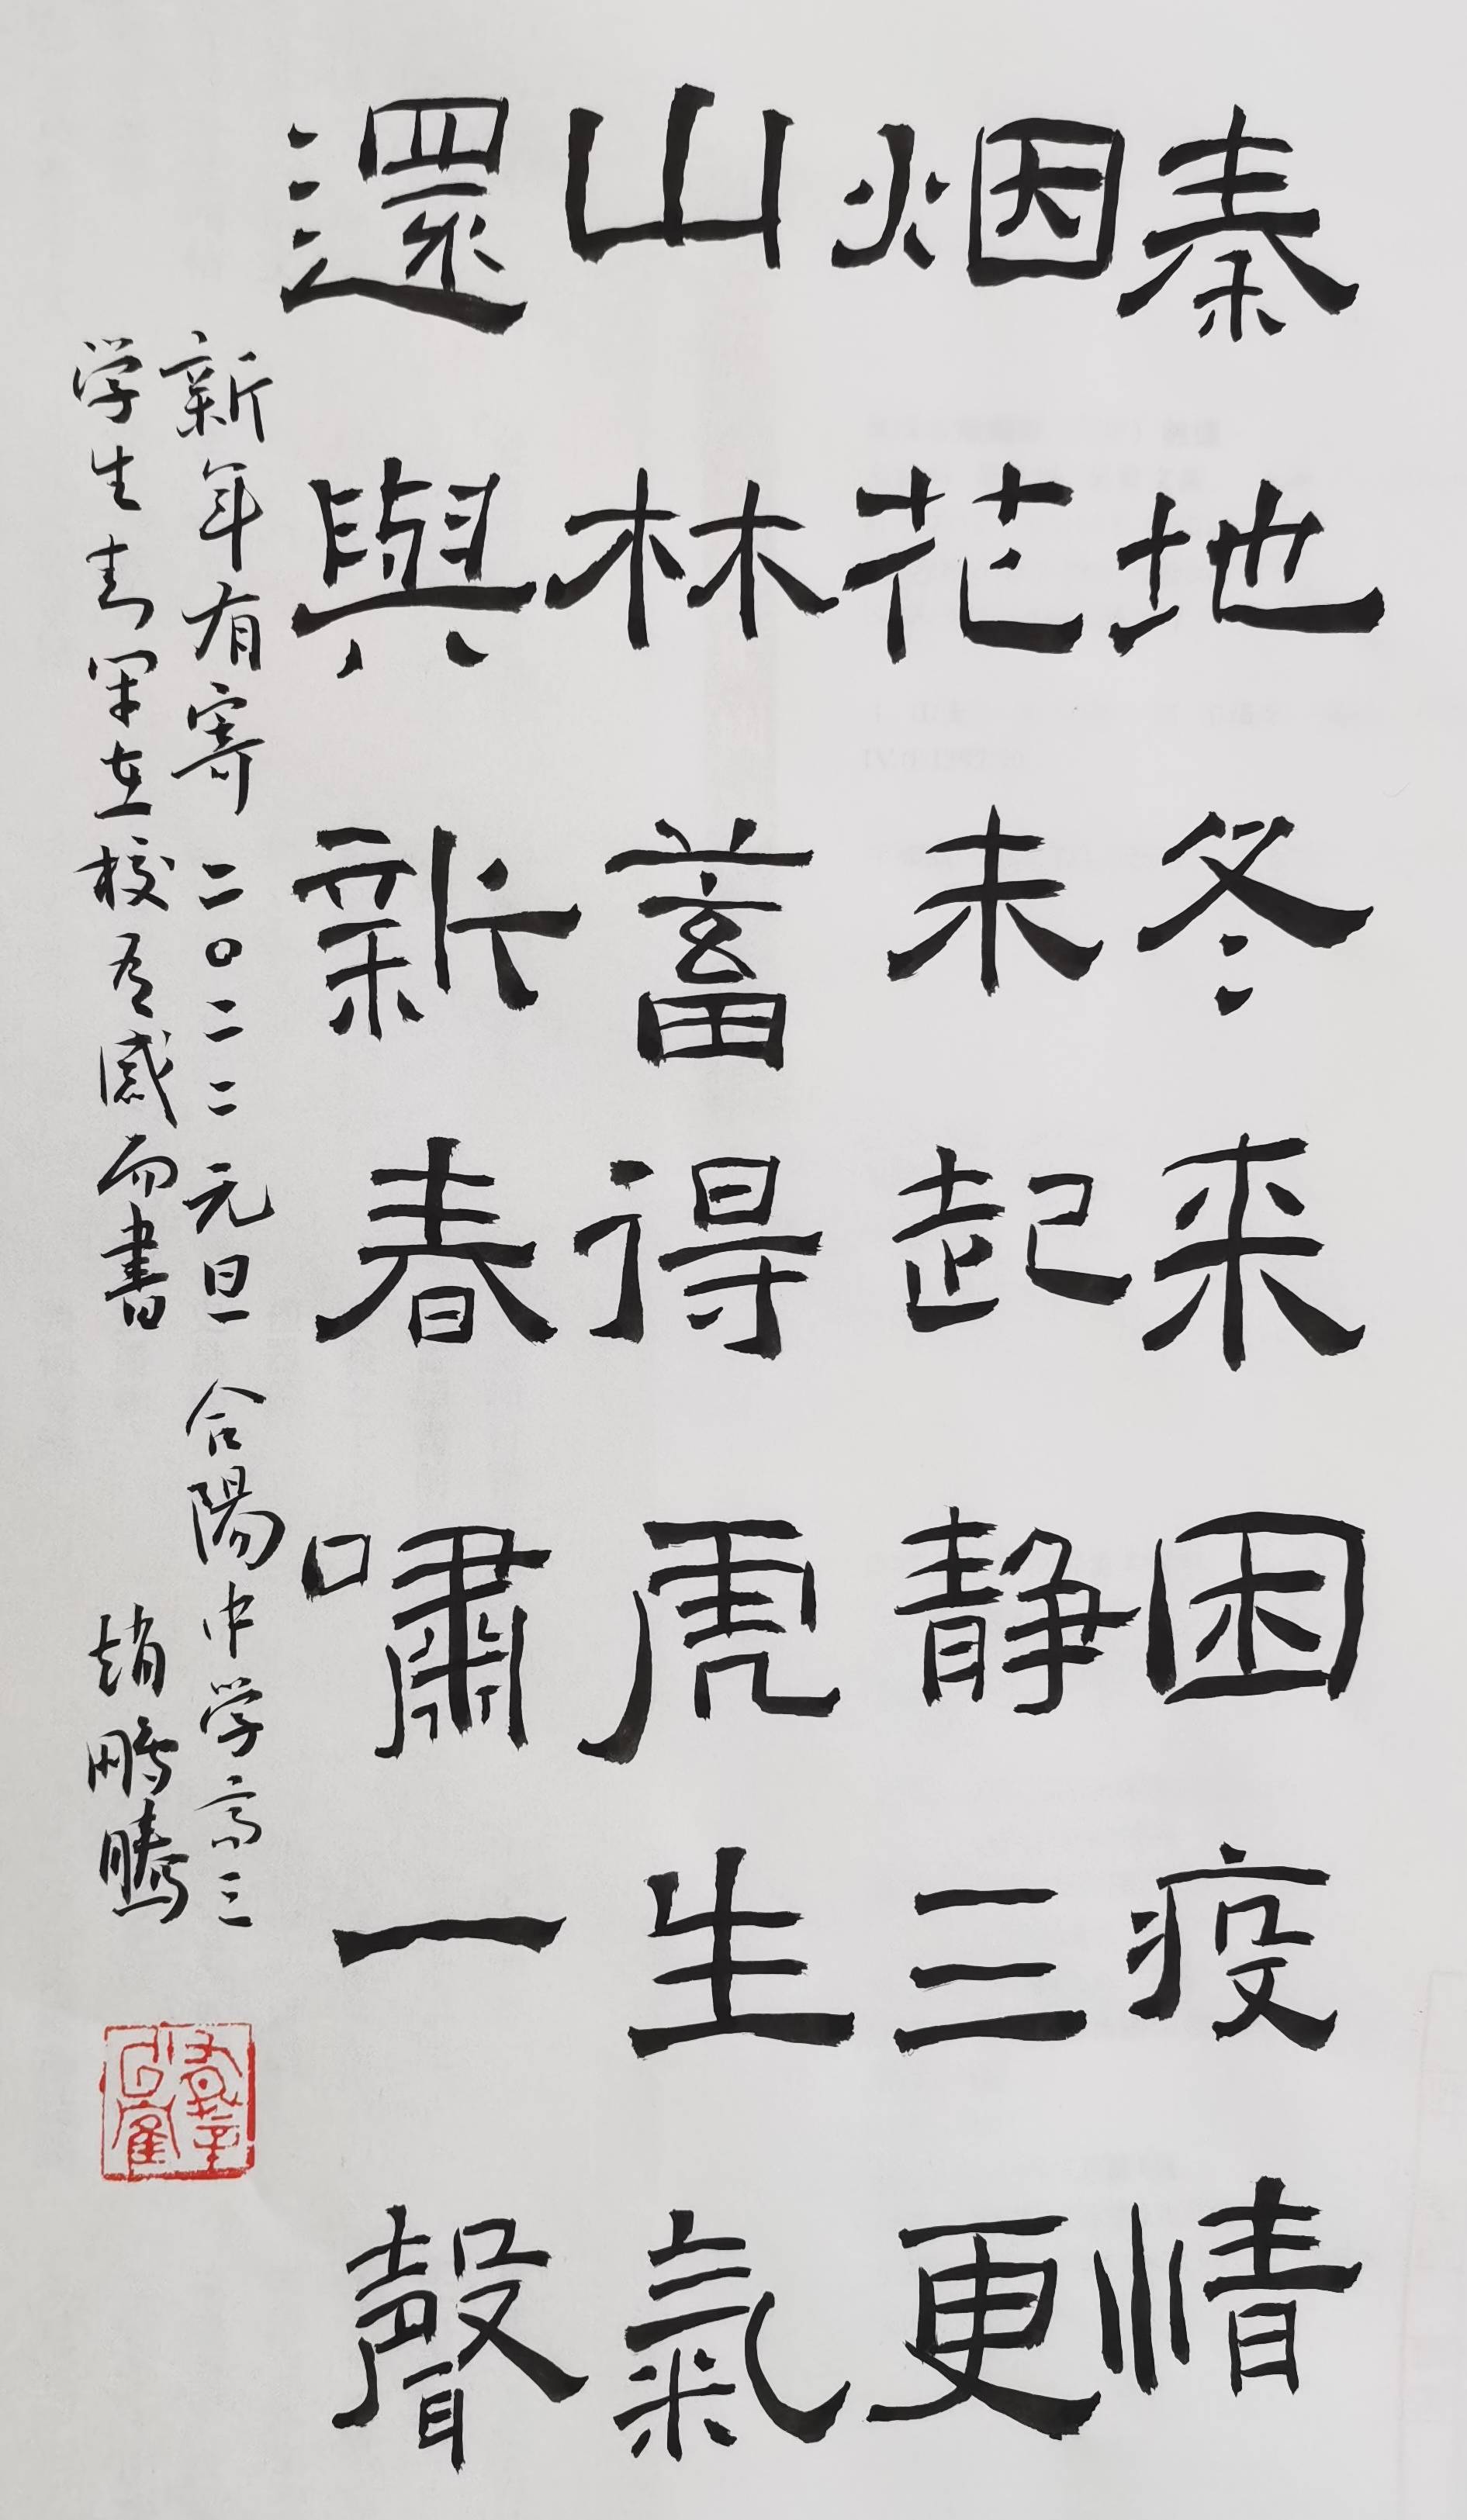 秦地冬来困疫情
烟花未起静三更
山林蓄得虎生氣
還與新春啸一聲
新年有寄 二〇二二元旦 合陽中学高三
学生去罕在校有感而書 趙鵬騰